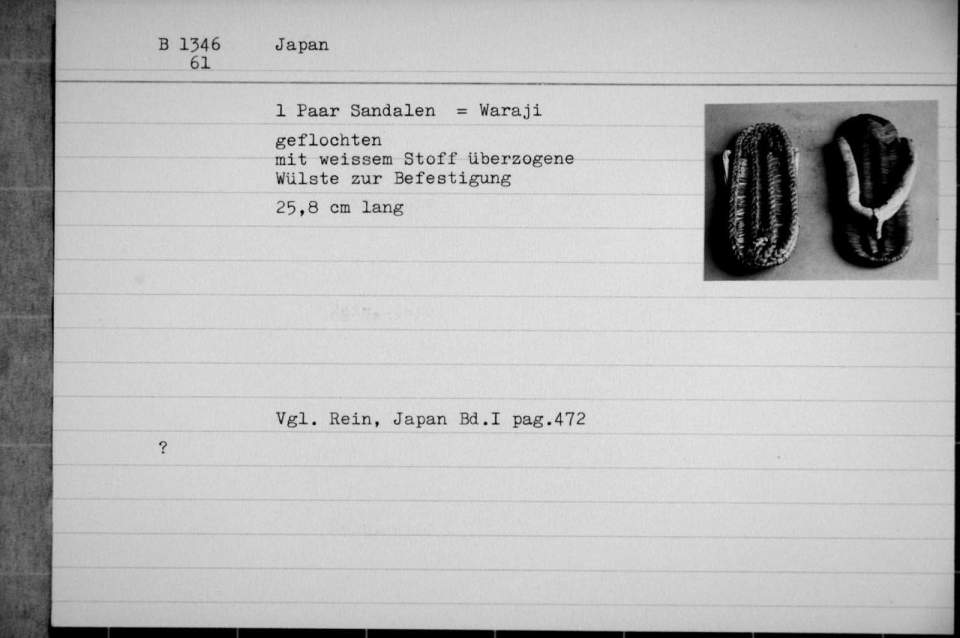 B 1346 Japan
61
1 Paar Sandalen = Waraji
geflochten
mit weissem Stoff überzogene
Wülste zur Befestigung
25,8 cm lang
Vgl. Rein, Japan Bd.I pag.472
?